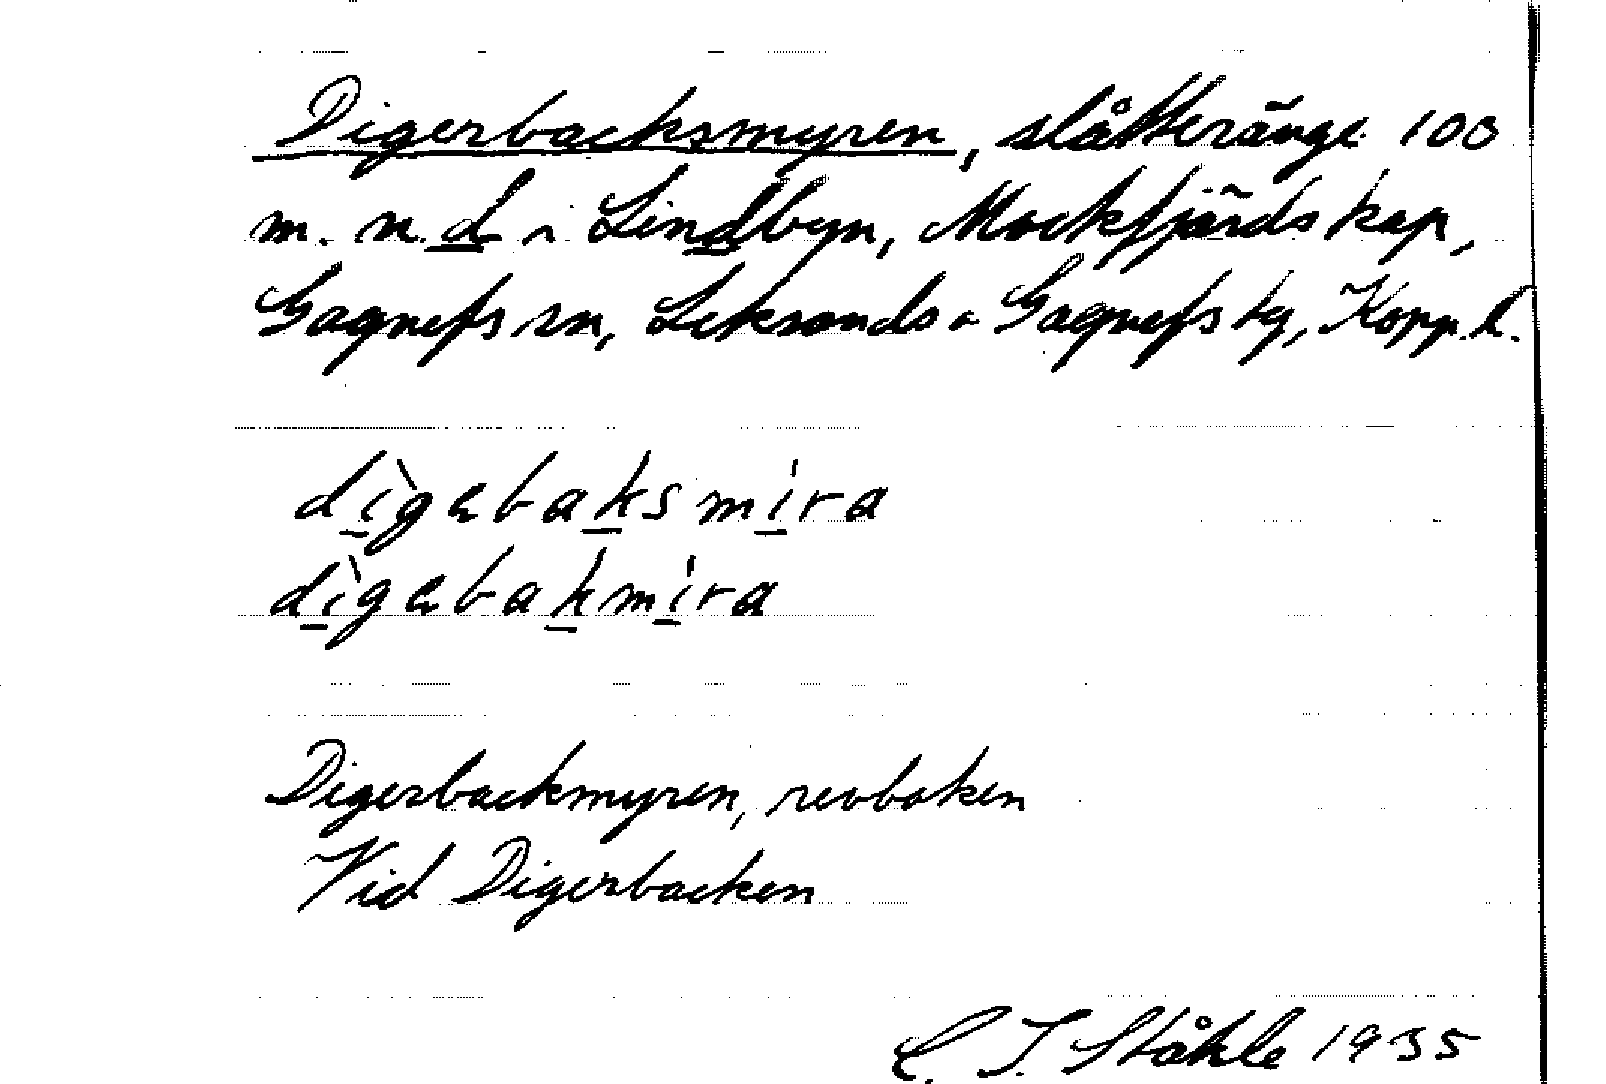 Digerbacksmyren, slåtteränge 100
m. n. d. ~ Lindbyn, Mockfjärds kap,
Gagnefs sn, Leksands o Gagnefs tg, Kopp. l.
dìgebaksmíra
dìgebakmíra
Digerbackmyren, revboken
Vid Digerbacken
C. I. Ståhle 1935